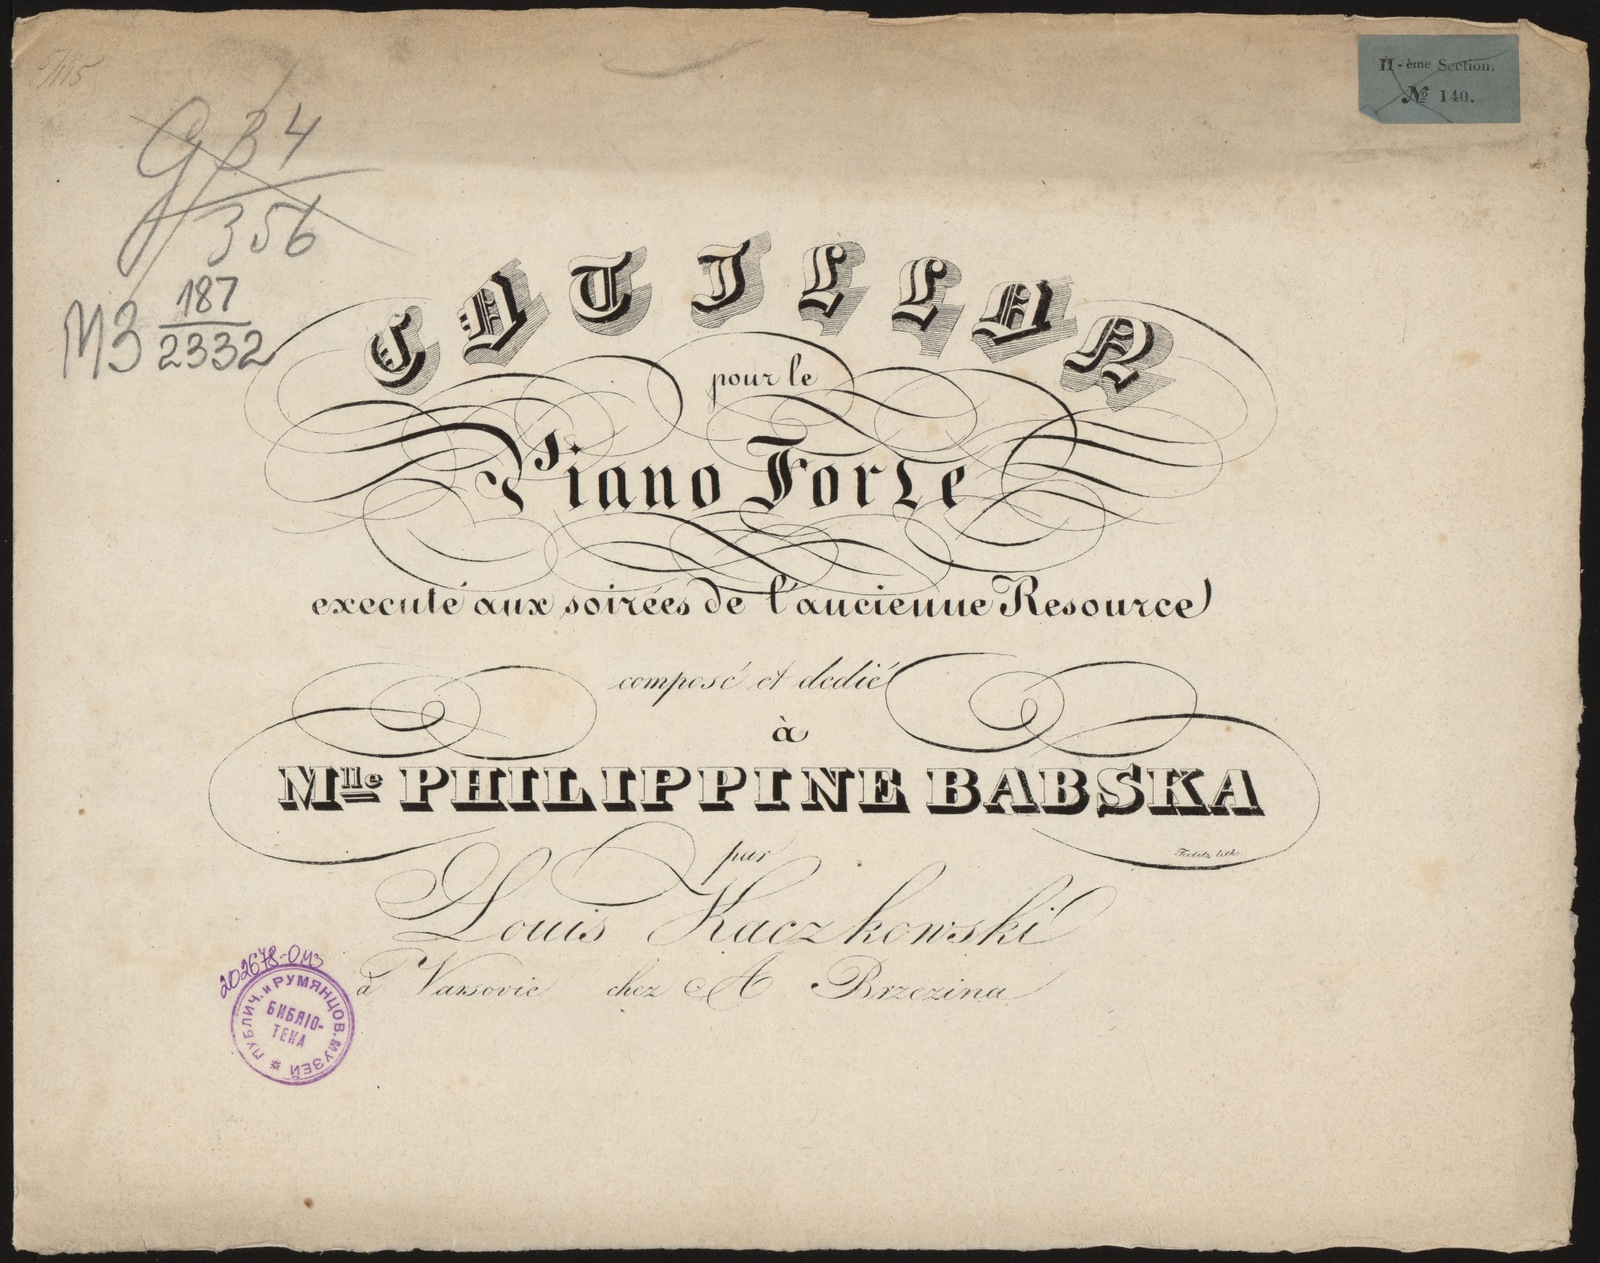 II-ème Section.
№ 140.
G 34
356
МЗ 187
2332
COTILLON
pour le
Piano Forte
executé aux soirées de l'ancienne Resource
composé et dedié
à
Mlle PHILIPPINE BABSKA
par
Louis Kaczkowski
à Varsovie chez A Brzezina
202678-ОМЗ
ПУБЛИЧ. и РУМЯНЦОВ. МУЗЕЙ
БИБЛІО-
ТЕКА